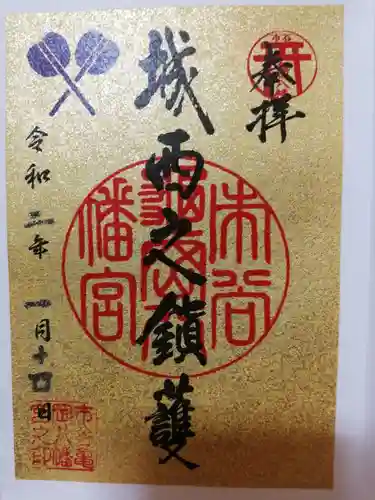 奉拝
城西之鎮護
市谷
亀岡
八幡宮
令和三年 一月十四日
市谷亀
岡八幡
宮之印